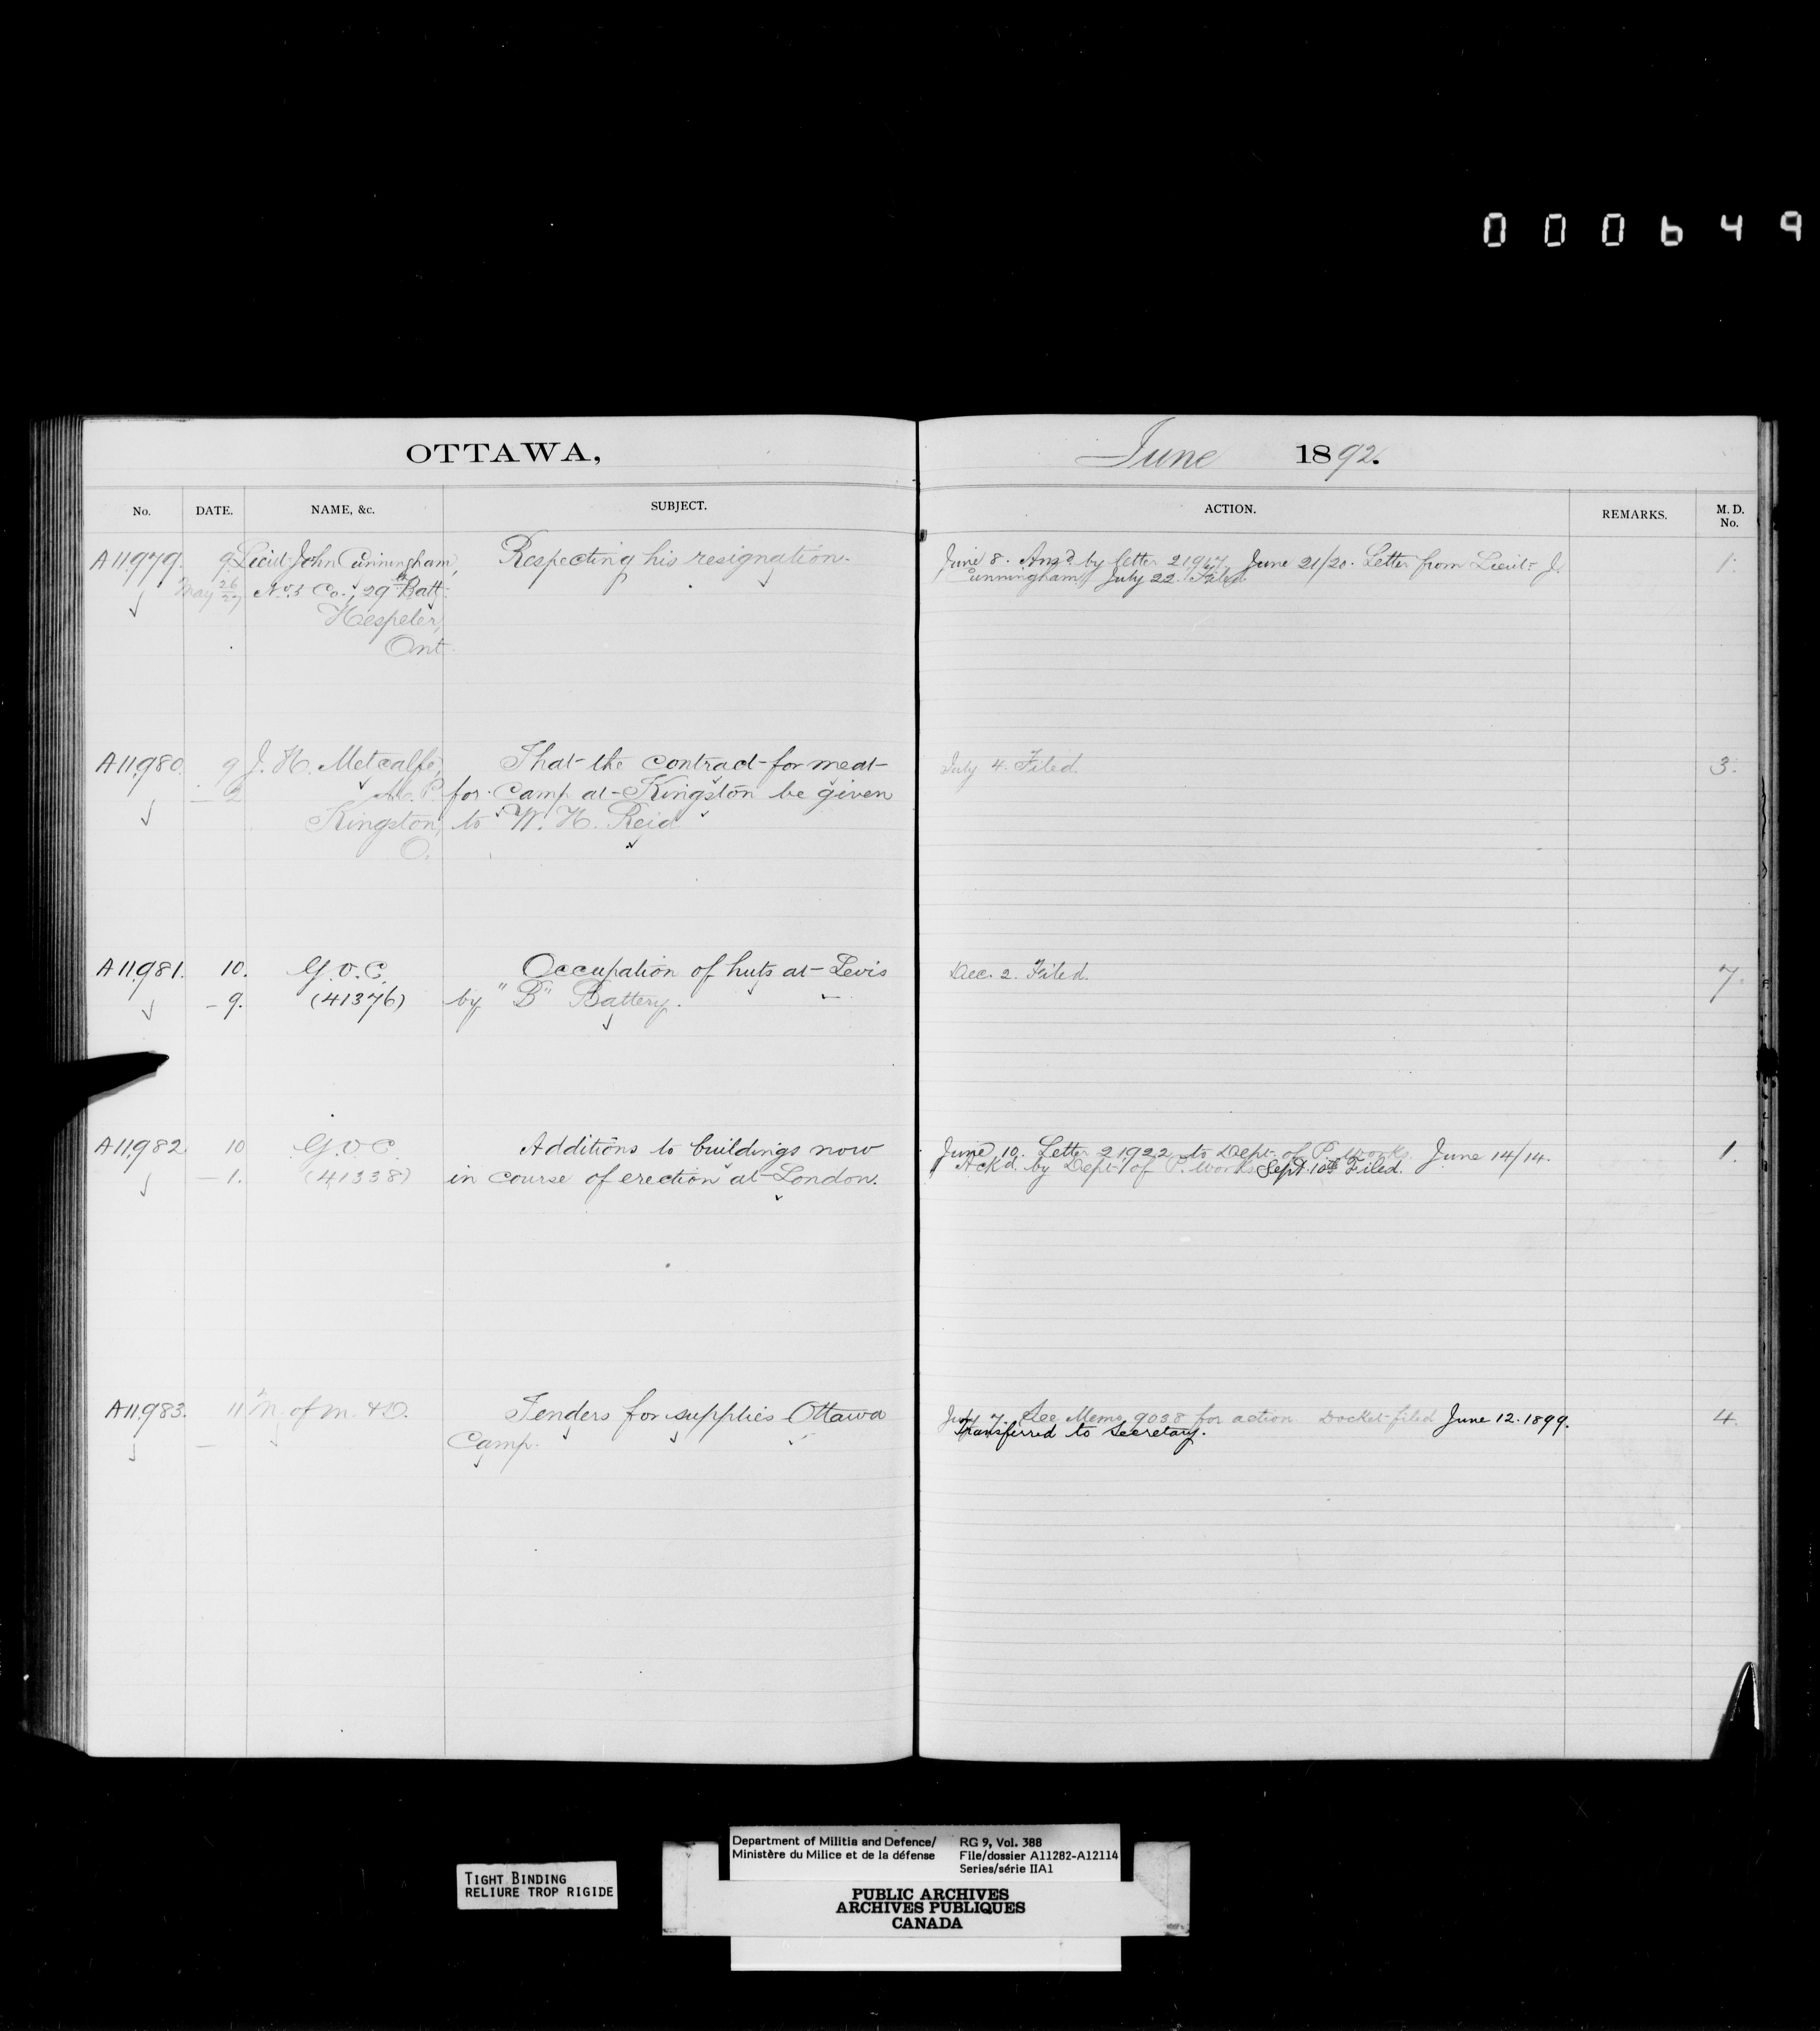 000649
OTTAWA, June 1892.
No. DATE. NAME, &c. SUBJECT. ACTION. REMARKS. M. D. No.
A11979. 9 Lieut John Cunningham, Respecting his resignation. June 8. Ansd by letter June 21/20. Letter from Lieut. J. 1.
May 26/27 Co., 29th Batt. Cunningham July 22. Filed.
Hespeler,
Ont.
A11980. 9 J. H. Metcalfe, That the contract for meat July 4. Filed. 3.
— 2 M. P. for Camp at Kingston be given
Kingston, to W. H. Reid
O.
A11981. 10. G.O.C. Occupation of huts at Levis Dec. 2. Filed. 7.
— 9. (41376) by "B" Battery.
A11982 10 G.O.C. Additions to buildings now June 10. Letter 21922 to Dept. of P. Works. June 14/14. 1.
— 1. (41338) in course of erection at London. Ackd. by Dept. of P. Works Sept 10th Filed.
A11983. 11 M. of M. & D. Tenders for supplies Ottawa July 7. See Memo 9038 for action. Docket filed June 12. 1899. 4.
— Camp. Transferred to Secretary.
TIGHT BINDING
RELIURE TROP RIGIDE
Department of Militia and Defence/ RG 9, Vol. 388
Ministère du Milice et de la défense File/dossier A11282-A12114
Series/série IIA1
PUBLIC ARCHIVES
ARCHIVES PUBLIQUES
CANADA